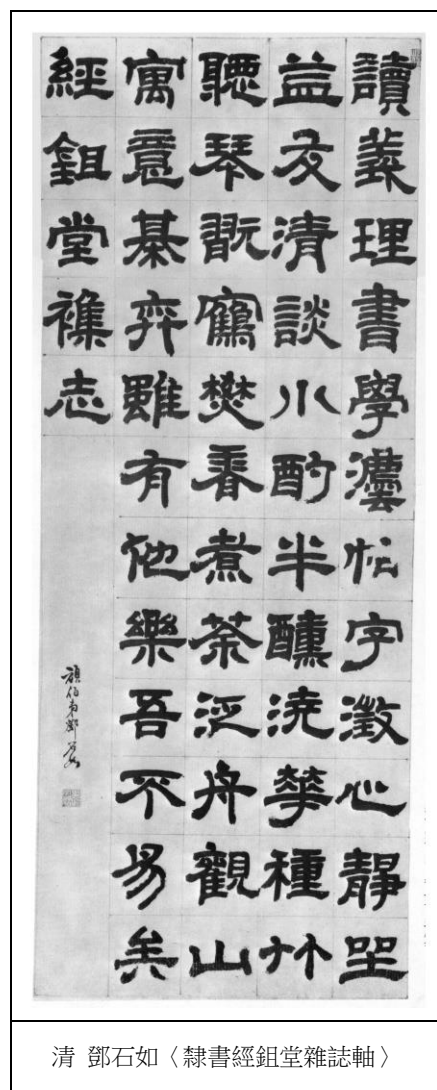 讀義理書學灋帖字澂心靜坐
益友清談小酌半醺澆華種竹
聽琴翫鶴焚香煮茶泛舟觀山
寓意棊弈雖有他樂吾不易矣
經鉏堂襍志
頑伯弟鄧石如
清 鄧石如〈隸書經鉏堂雜誌軸〉